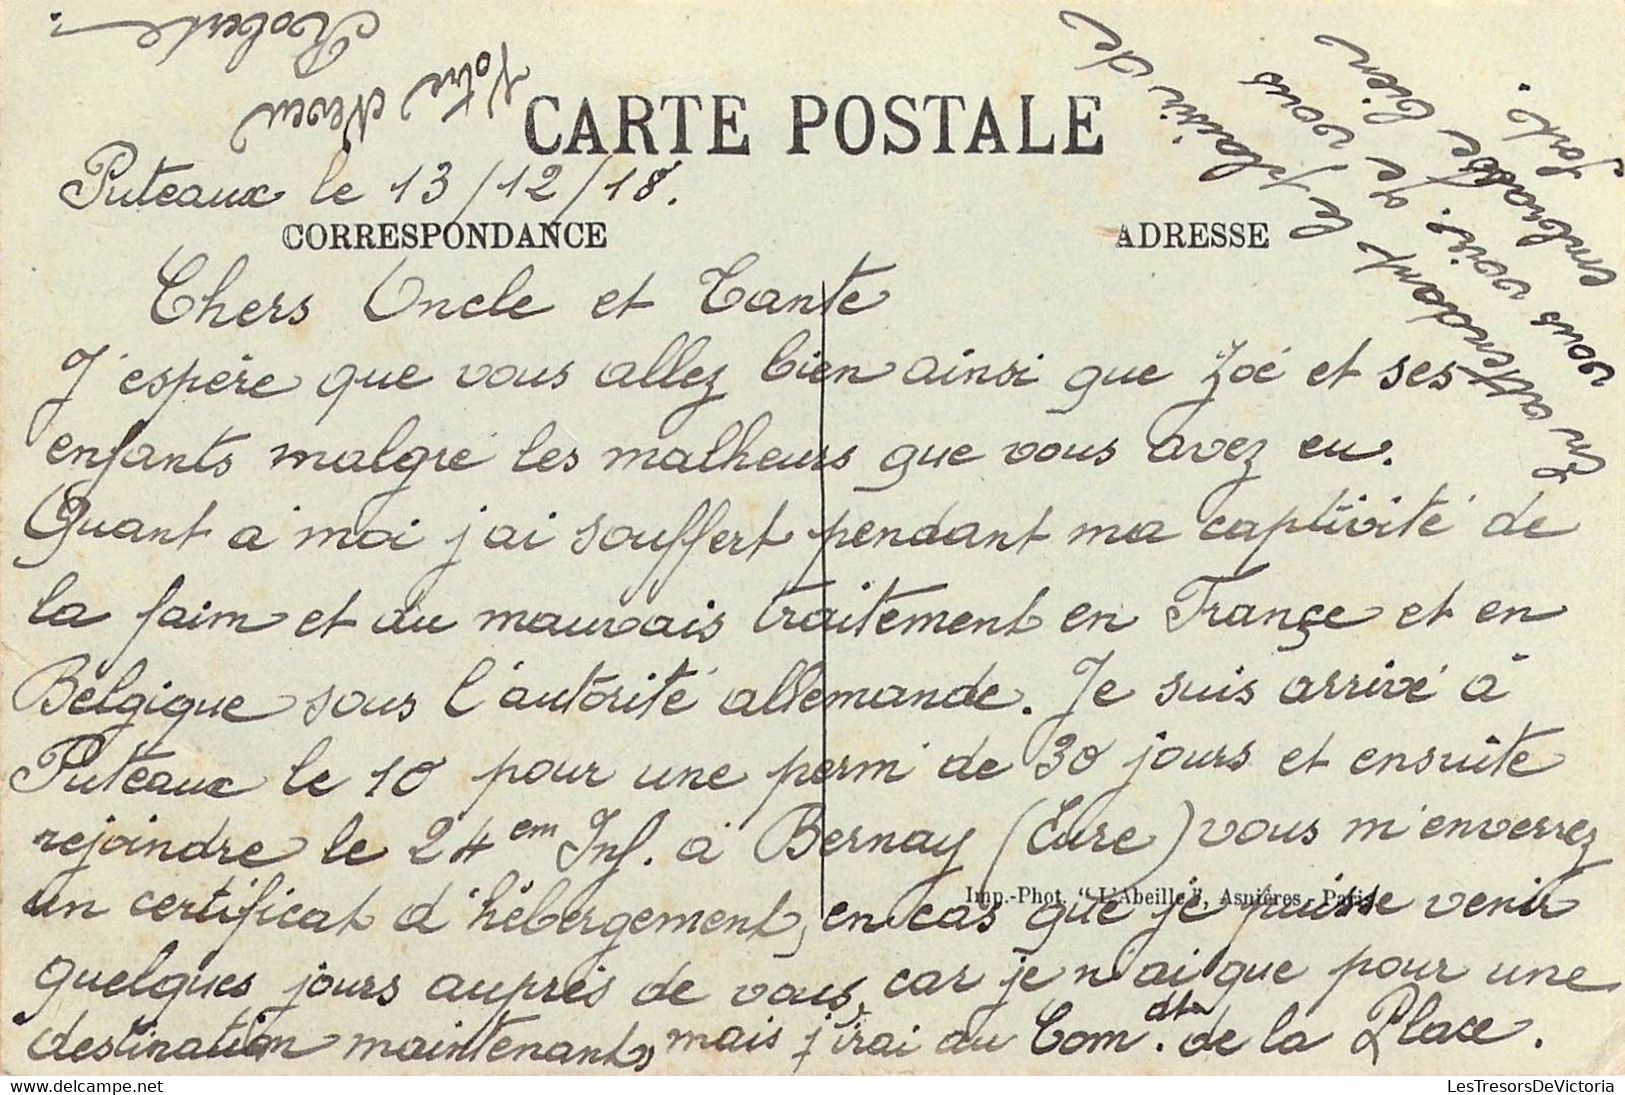 CARTE POSTALE
Puteaux le 13/12/18.
CORRESPONDANCE
ADRESSE
Chers Oncle et Tante
J'espère que vous allez bien ainsi que Zoé et ses
enfants malgré les malheurs que vous avez eu.
Quant à moi j'ai souffert pendant ma captivité de
la faim et du mauvais traitement en France et en
Belgique sous l'autorité allemande. Je suis arrivé à
Puteaux le 10 pour une perm' de 30 jours et ensuite
rejoindre le 24em Inf. à Bernay (Eure) vous m'enverrez
un certificat d'hébergement, en cas que je puisse venir
quelques jours auprès de vous, car je n'ai que pour une
destination maintenant, mais j'irai au Comdt. de la Place.
En attendant le plaisir de
vous voir. Je vous
embrasse bien
fort.
Votre Neveu
Roberte
Imp.-Phot. "L'Abeille", Asnières-Paris
LesTresorsDeVictoria